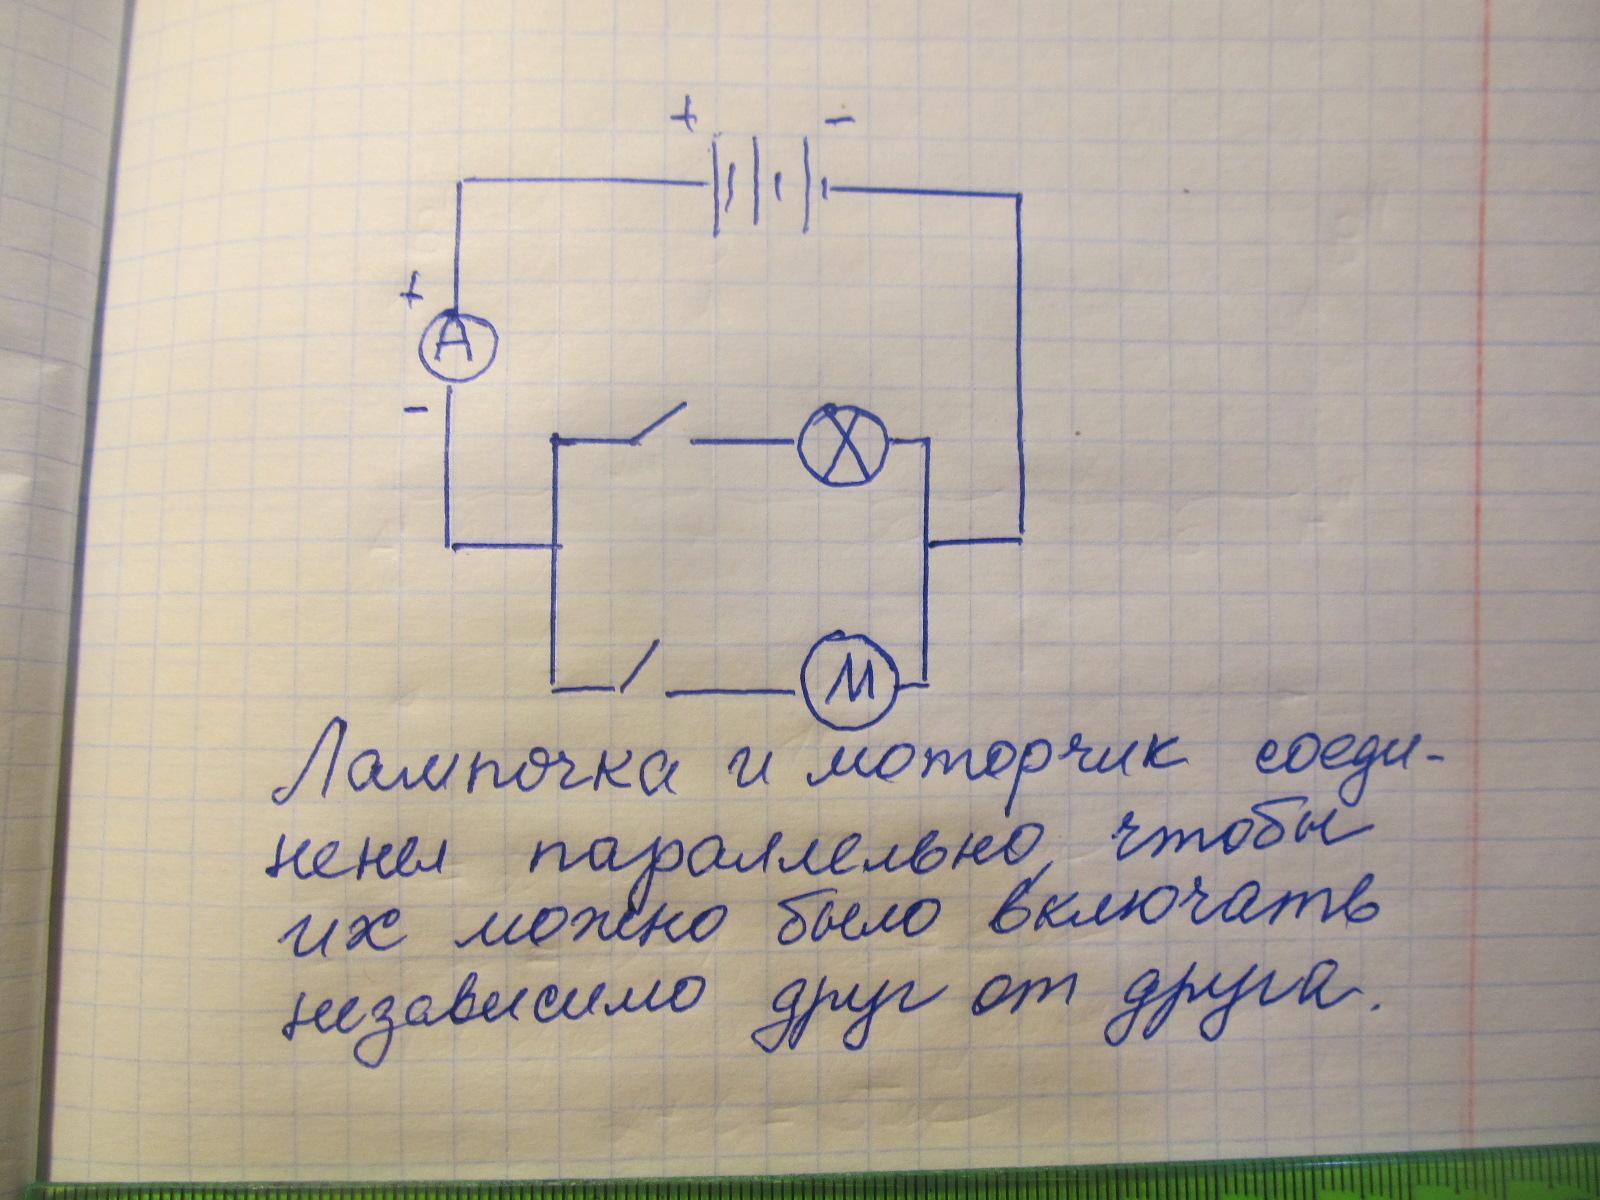 + -
+
А
-
М
Лампочка и моторчик соеди-
нены параллельно, чтобы
их можно было включать
независимо друг от друга.